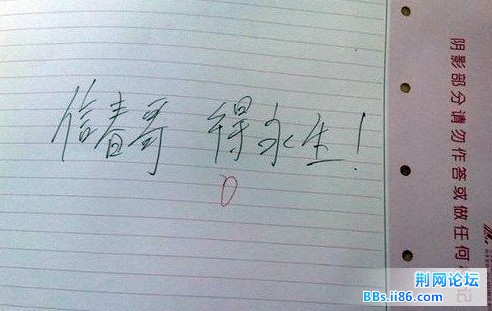 信春哥 得永生！
0
阴影部分请勿作答或做任何
记
荆网论坛
BBs.ii86.com